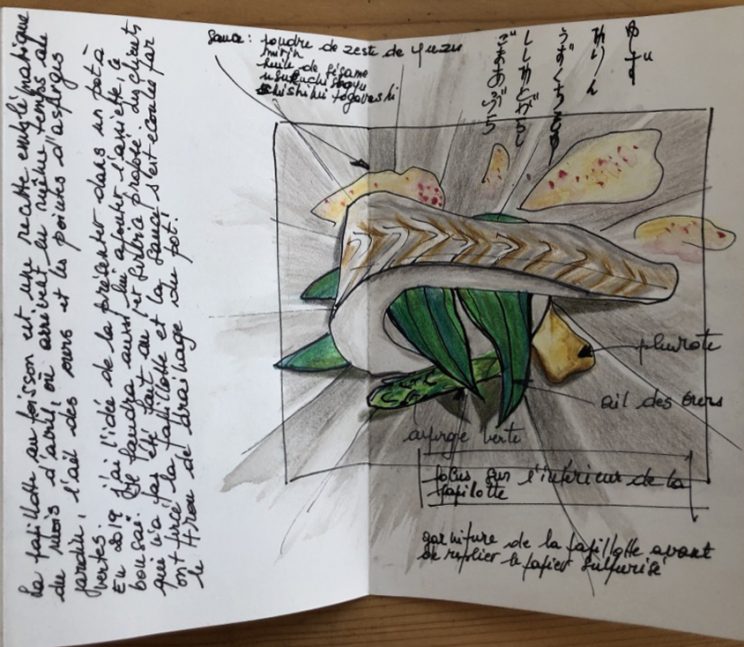 La papillotte au poisson est une recette emblématique
du mois d'avril, où arrivent en même temps au
jardin, l'ail des ours et les pointes d'asperges
vertes.
j'ai l'idée de la présenter dans un pot à
bonsaï. Il faudra aussi lui ajouter l'assiette, ce
qui n'a pas été fait au des clients
ont tiré la papillotte et la sauce s'est écoulée par
le trou de drainage du pot!
Sauce: poudre de zeste de yuzu
mirin
huile de sésame
usukuchi shoyu
shishimi togarashi
ゆず
みりん
ごまあぶら
pleurote
ail des ours
asperge verte
focus sur l'intérieur de la
papillotte
garniture de la papillotte avant
de replier le papier sulfurisé